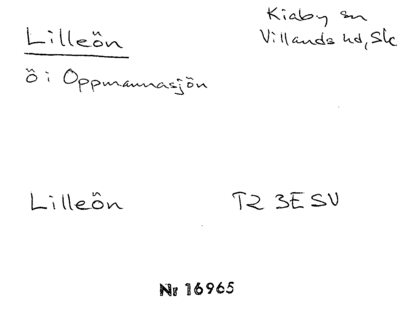 Lilleön
Kiaby sn
Villands hd, Sk
ö i Oppmannasjön
Lilleön
T2 3E SV
Nr 16965